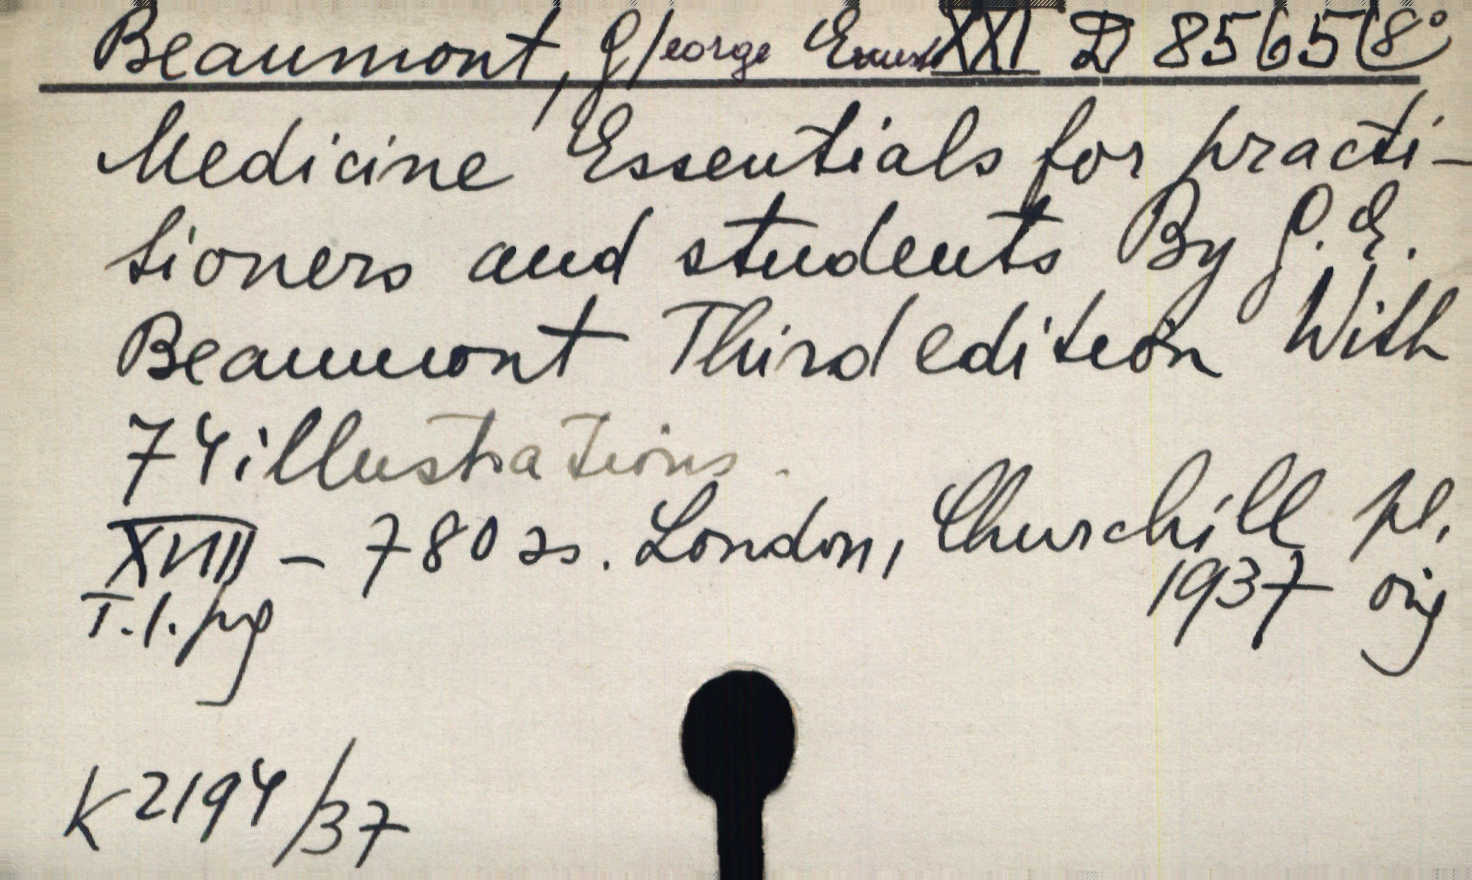 Beaumont, G/eorge Ernest XXI D 8565 (8°)
Medicine Essentials for practi-
tioners and students By G. E.
Beaumont Third edition With
74 illustrations.
XVIII - 780 ss. London, Churchill pl.
T.1. pg 1937 orig
K 2194/37